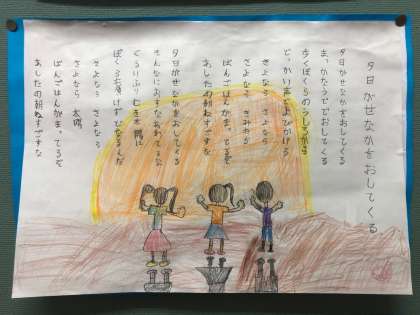 夕日がせなかをおしてくる
夕日がせなかをおしてくる
まっかなうででおしてくる
歩くぼくらのうしろから
でっかい声でよびかける
さよなら さよなら
さよなら きみたち
ばんごはんがまってるぞ
あしたの朝ねすごすな
夕日がせなかをおしてくる
そんなにおすなあわてるな
ぐるりふりむき太陽に
ぼくらも負けずどなるんだ
さよなら さよなら
さよなら 太陽
ばんごはんがまってるぞ
あしたの朝ねすごすな